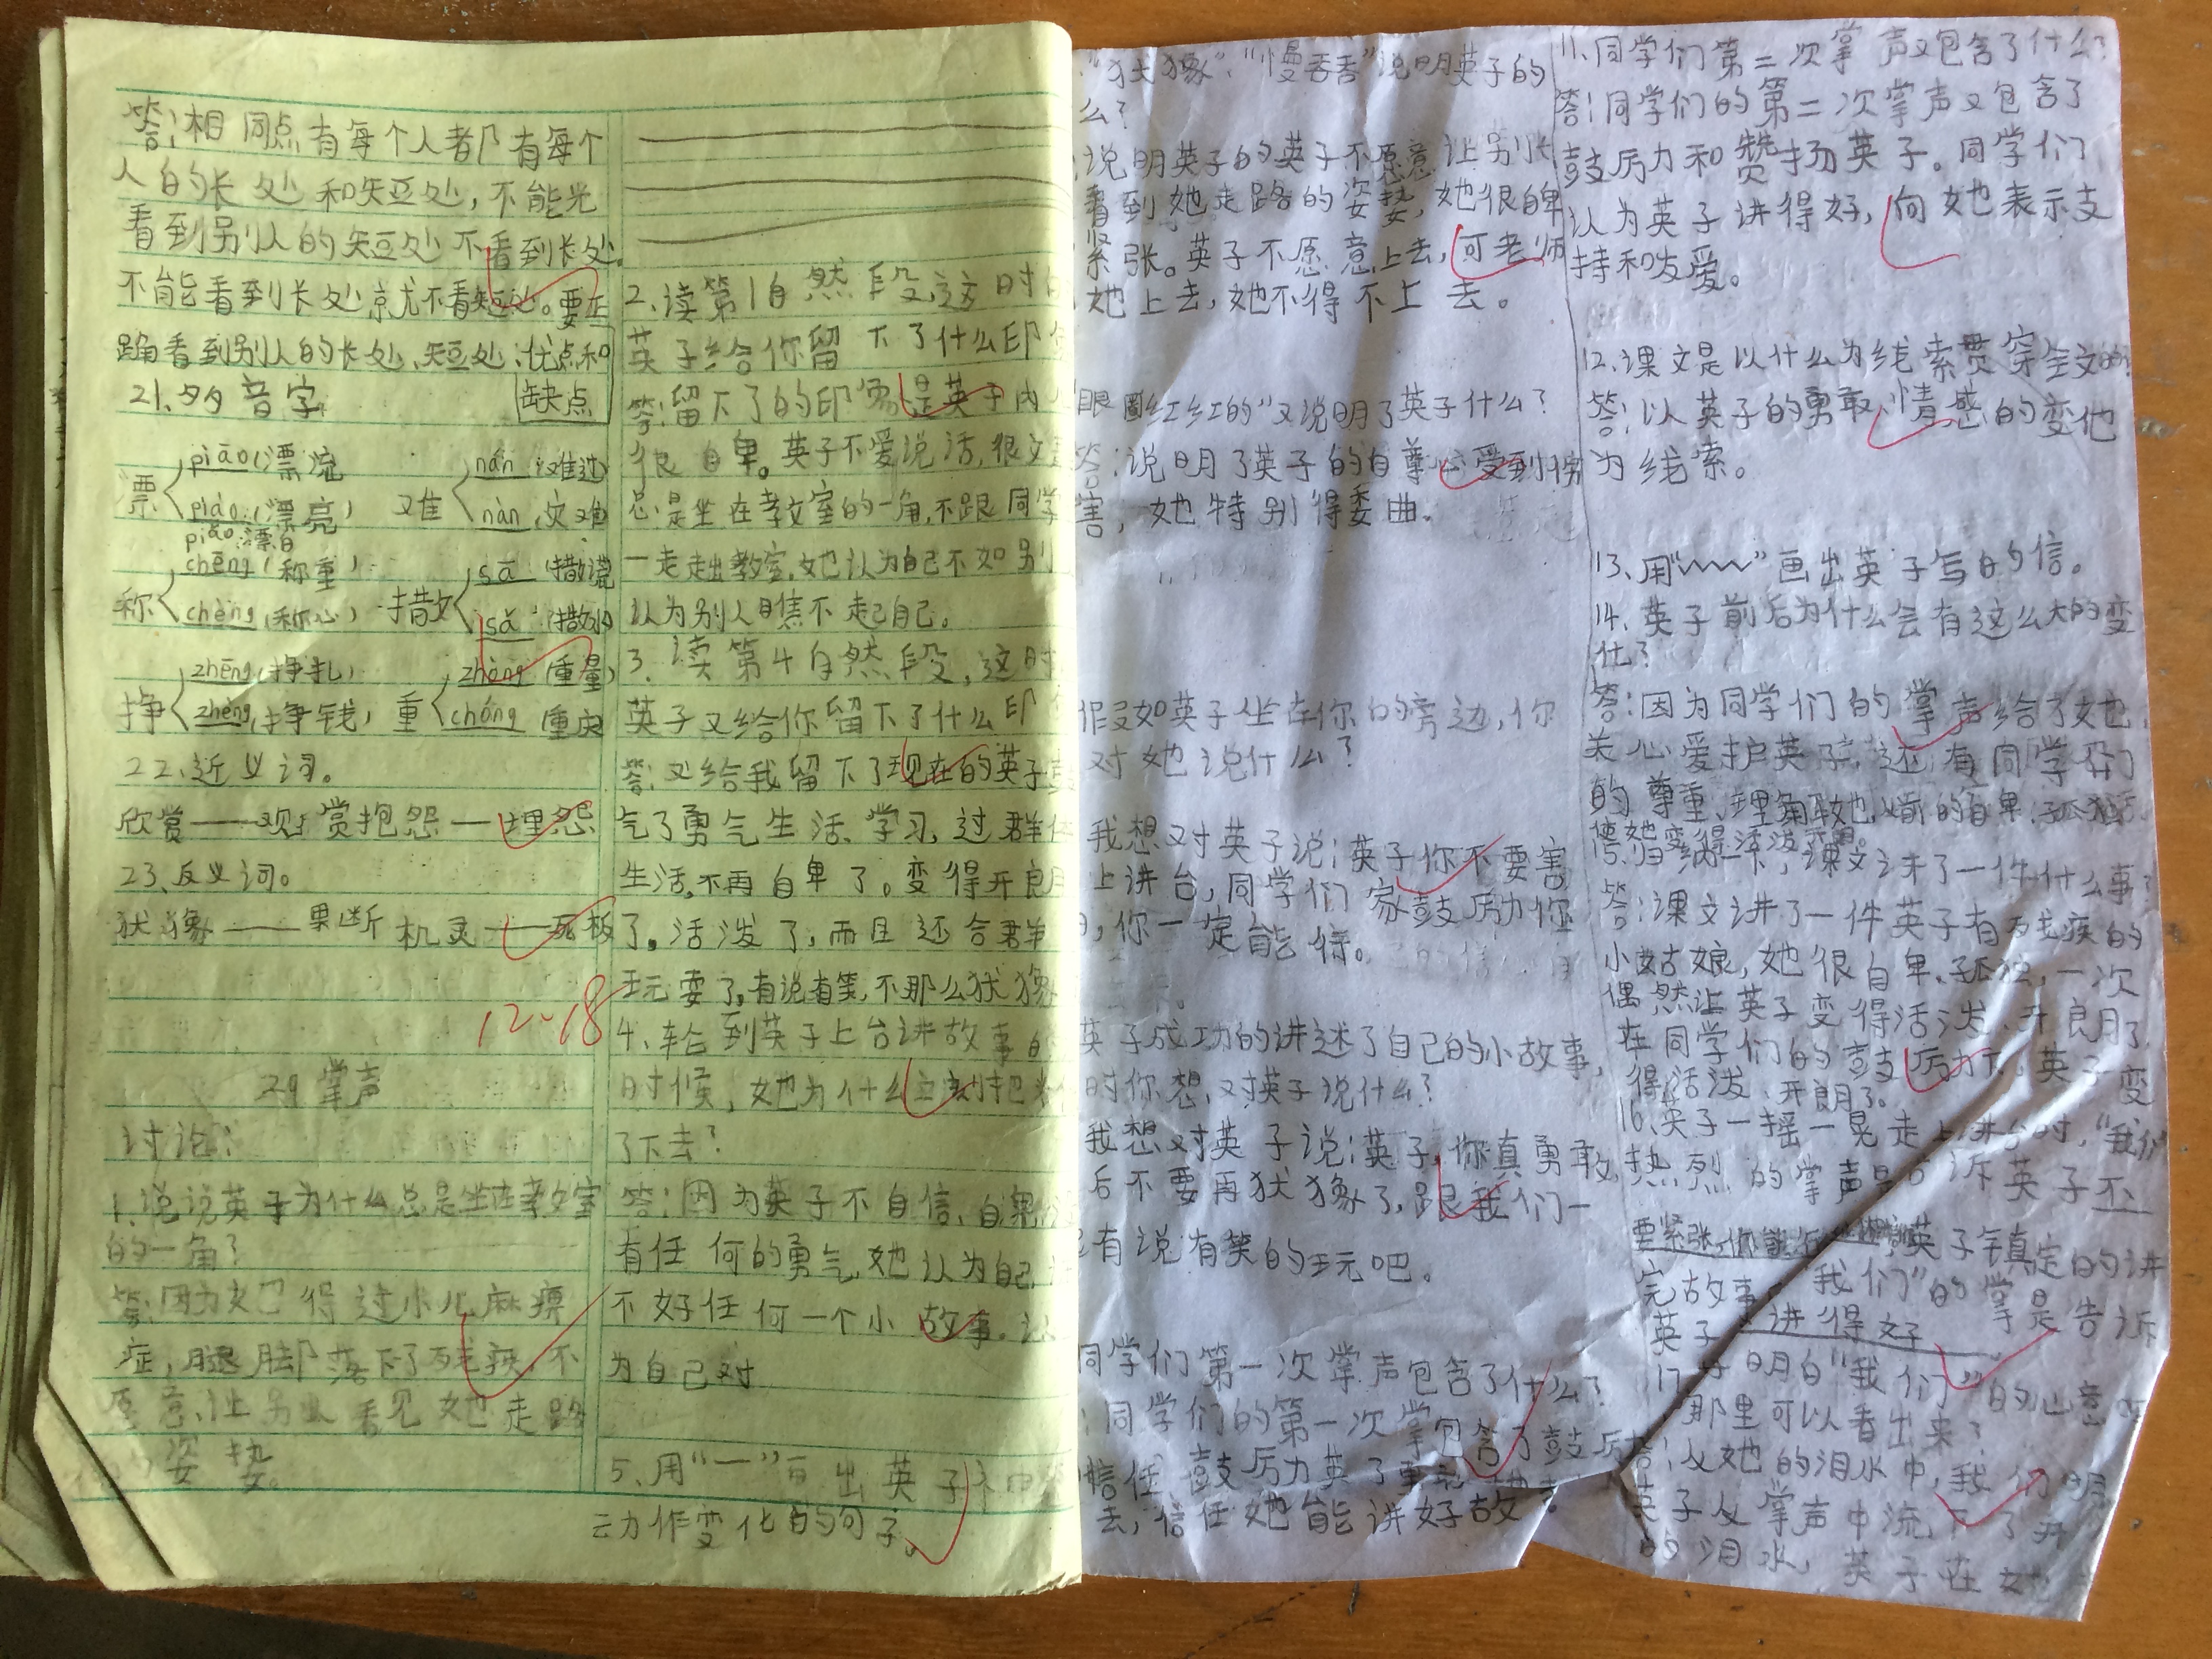 答:相同点有每个人都有每个
人的长处和短处,不能光
看到别人的短处不看到长处.
不能看到长处就不看短处。要正
确看到别人的长处、短处、优点和
缺点
21、多音字
漂 piāo(漂流
piào:(漂亮)
piǎo:漂白
难 nán (难过)
nàn 灾难
称 chēng(称重)
chèng(称心)
撒 sā (撒谎
sǎ (撒水
挣 zhēng(挣扎)
zhèng(挣钱)
重 zhòng (重量)
chóng (重庆
22、近义词。
欣赏——观赏 抱怨——埋怨
23、反义词。
犹豫——果断 机灵——死板
12-18
29 掌声
讨论:
1、说说英子为什么总是坐在教室
的一角?
答:因为她已得过小儿麻痹
症,腿脚落下了残疾,不
愿意让别人看见她走路
姿势。
2、读第1自然段,这时
英子给你留下了什么印
答:留下了的印象是英子内
很自卑。英子不爱说话,很文
总是坐在教室的一角,不跟同学
一走走出教室,她认为自己不如别
认为别人瞧不起自己。
3、读第4自然段,这时
英子又给你留下了什么印
答:又给我留下了现在的英子
气了勇气生活、学习,过群体
生活,不再自卑了。变得开朗
了。活泼了,而且还合群
玩耍了。有说有笑,不那么犹豫
4、轮到英子上台讲故事的
时候,她为什么立刻把头
了下去?
答:因为英子不自信、自卑
有任何的勇气,她认为自己
不好任何一个小故事。认
为自己对
5、用“—”画出英子神
动作变化的句子。
“犹豫”“慢吞吞”说明英子的
么?
说明英子的英子不愿意让别人
看到她走路的姿势,她很自卑
紧张。英子不愿意上去,可老师
她上去,她不得不上去。
眼圈红红的”又说明了英子什么?
答:说明了英子的自尊心受到伤
害,她特别得委曲。
假如英子坐在你的旁边,你
对她说什么?
我想对英子说:英子你不要害
上讲台,同学们家鼓励你
,你一定能得。
英子成功的讲述了自己的小故事,
时你想对英子说什么?
我想对英子说:英子,你真勇敢,
后不要再犹豫了,跟我们一
有说有笑的玩吧。
同学们第一次掌声包含了什么?
:同学们的第一次掌包含了鼓励
信任,鼓励英子
去,信任她能讲好故
11、同学们第二次掌声又包含了什么?
答:同学们的第二次掌声又包含了
鼓励和赞扬英子。同学们
认为英子讲得好,向她表示支
持和友爱。
12、课文是以什么为线索贯穿全文的
答:以英子的勇敢、情感的变化
为线索。
13、用“﹏﹏”画出英子写的信。
14、英子前后为什么会有这么大的变
化?
答:因为同学们的掌声给了她,
关心爱护英子,还有同学们
的尊重、理解
使她变得活泼
归纳一下,课文讲了一件什么事?
答:课文讲了一件英子有残疾的
小姑娘,她很自卑、孤独,一次
偶然让英子变得活泼、开朗了,
在同学们的鼓励下。英子变
得活泼、开朗了。
16、英子一摇一晃走上讲台时,“我们”
热烈的掌声是告诉英子不
要紧张,你能行 英子镇定的讲
完故事,“我们”的掌是告诉
英子讲得好
17、 明白“我们”的心意
那里可以看出来?
:从她的泪水中,我们明
英子从掌声中流下了
的泪水,英子在她